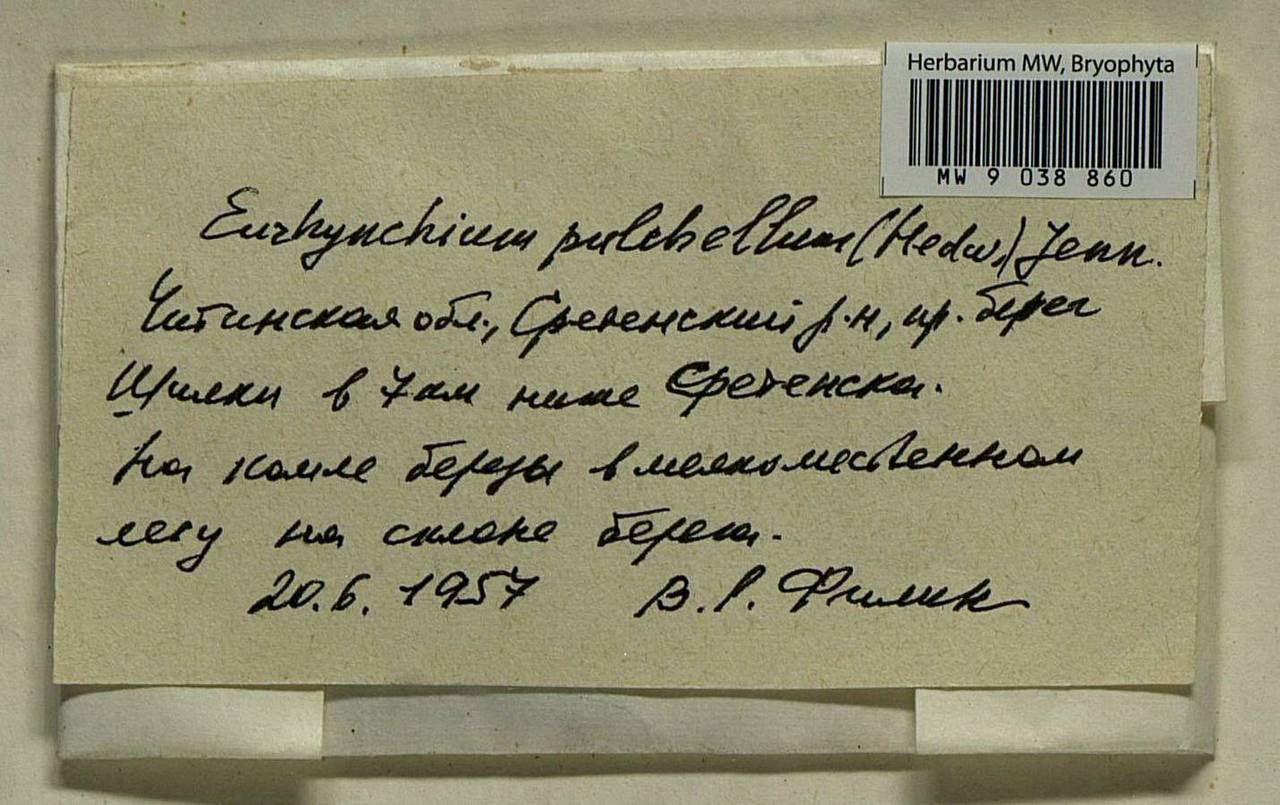 Herbarium MW, Bryophyta
MW 9 038 860
Eurhynchium pulchellum (Hedw.) Jenn.
Читинская обл., Сретенский р-н, пр. берег
Шилки в 7 км ниже Сретенска.
На комле березы в мелколиственном
лесу на склоне берега.
20.6.1957 В. Р. Филин